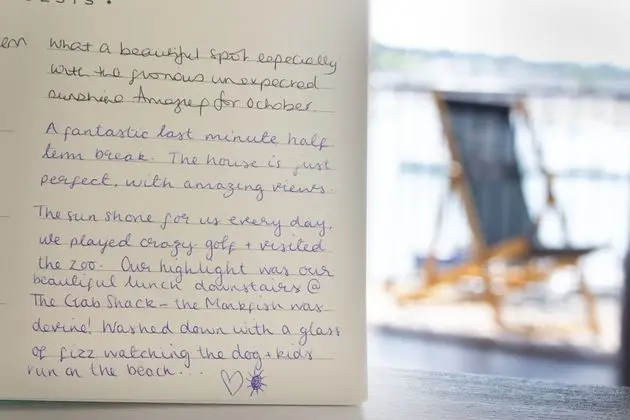 What a beautiful spot especially
with the glorious unexpected
sunshine Amazing for October.
A fantastic last minute half
term break. The house is just
perfect, with amazing views.
The sun shone for us every day,
we played crazy golf + visited
the zoo. Our highlight was our
beautiful lunch downstairs @
The Crab Shack - the Monkfish was
devine! Washed down with a glass
of fizz watching the dog + kids
run on the beach...